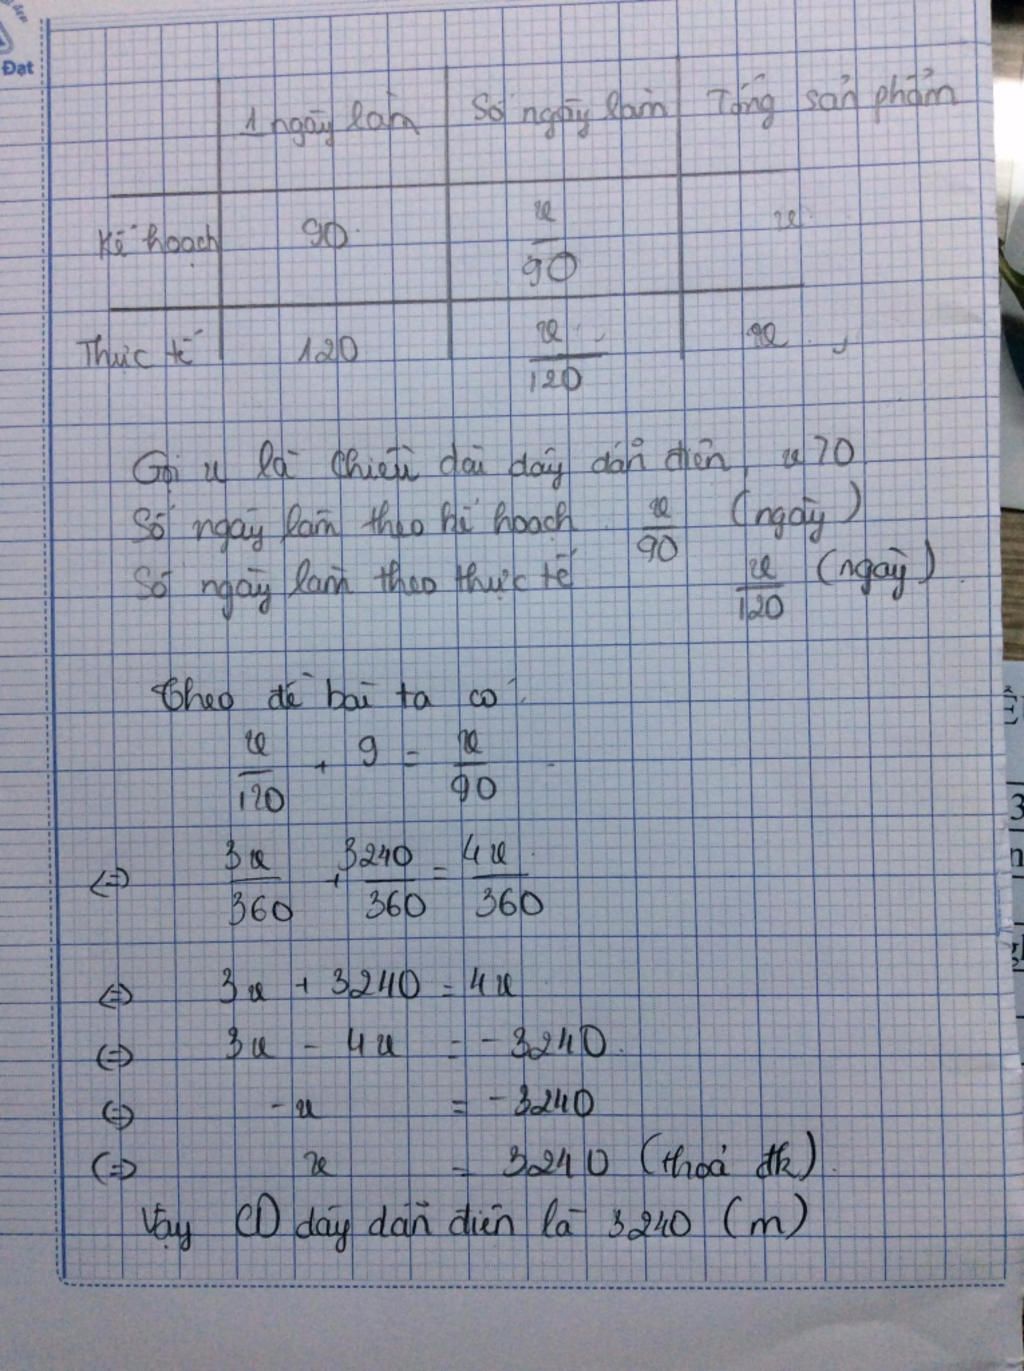 Đạt
1 ngày làm Số ngày làm Tổng sản phẩm
Kế hoạch 90 x/90 x
Thực tế 120 x/120 x
Gọi x là chiều dài dây dẫn điện, x>0
Số ngày làm theo kế hoạch x/90 (ngày)
Số ngày làm theo thực tế x/120 (ngày)
Theo đề bài ta có:
x/120 + 9 = x/90
<=> 3x/360 + 3240/360 = 4x/360
<=> 3x + 3240 = 4x
<=> 3x - 4x = -3240
<=> -x = -3240
<=> x = 3240 (thoả đk)
Vậy CD dây dẫn điện là 3240 (m)